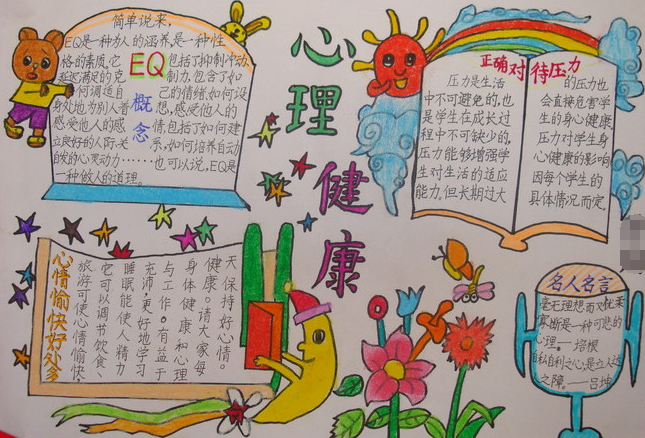 心理健康
简单说来，
EQ是一种为人的涵养，是一种性
格的素质，它
EQ概念
包括了抑制冲动、
延迟满足的克
制力，包含了如
何调适自
己的情绪，如何设
身处地为别人着
想，感受他人的
感受他人的感
情，包括了如何建
立良好的人际关
系，如何培养自动
自发的心灵动力……
也可以说，EQ是
一种做人的道理。
正确对待压力
压力是生活
中不可避免的，也
是学生在成长过
程中不可缺少的，
压力能够增强学
生对生活的适应
能力，但长期过大
的压力也
会直接危害学
生的身心健康
压力对学生身
心健康的影响
因每个学生的
具体情况而定。
心情愉快好处多
天保持好心情。
健康。请大家每
身体健康和心理
与工作。有益于
充沛，更好地学习
睡眠能使人精力
它可以调节饮食、
旅游可使心情愉快，
名人名言
毫无理想而又优柔
寡断是一种可悲的
心理。—培根
自私自利之心，是立人达人
之障。——吕坤